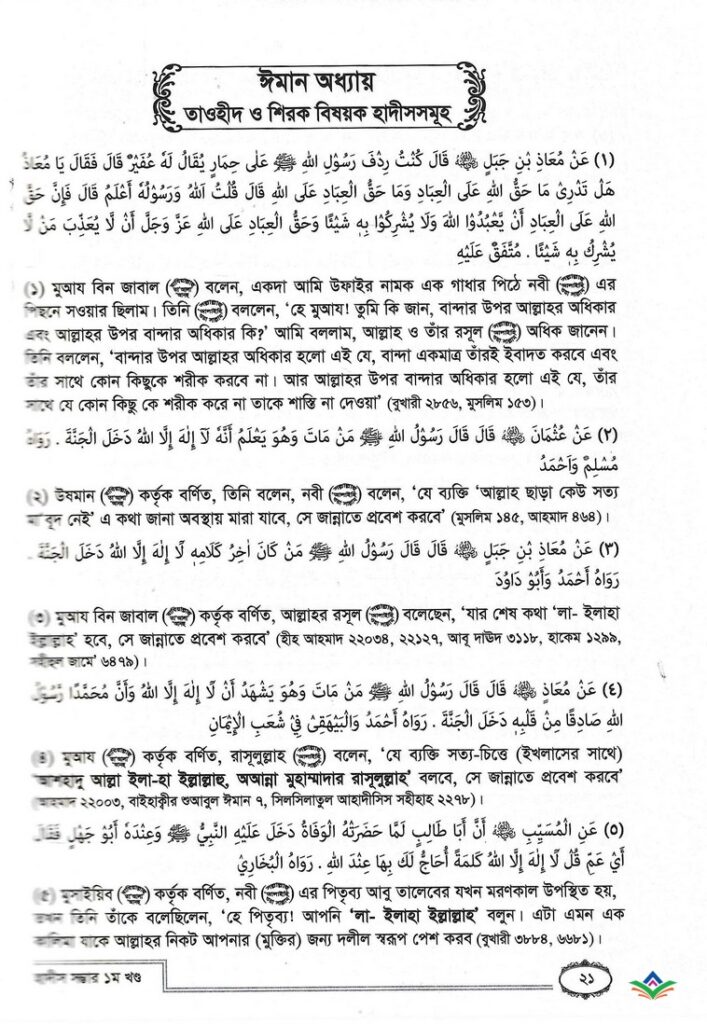 ঈমান অধ্যায়
তাওহীদ ও শিরক বিষয়ক হাদীসসমূহ
(١) عَنْ مُعَاذِ بْنِ جَبَلٍ ﷺ قَالَ كُنْتُ رِدْفَ رَسُوْلِ اللهِ ﷺ عَلٰى حِمَارٍ يُقَالُ لَهُ عُفَيْرٌ قَالَ فَقَالَ يَا مُعَاذُ
هَلْ تَدْرِىْ مَا حَقُّ اللهِ عَلَى الْعِبَادِ وَمَا حَقُّ الْعِبَادِ عَلَى اللهِ قَالَ قُلْتُ اَللهُ وَرَسُوْلُهُ أَعْلَمُ قَالَ فَإِنَّ حَقَّ
اللهِ عَلَى الْعِبَادِ أَنْ يَّعْبُدُوْا اللهَ وَلَا يُشْرِكُوْا بِهِ شَيْئًا وَحَقُّ الْعِبَادِ عَلَى اللهِ عَزَّ وَجَلَّ أَنْ لَّا يُعَذِّبَ مَنْ لَّا
يُشْرِكُ بِهِ شَيْئًا . مُتَّفَقٌ عَلَيْهِ
(১) মুআয বিন জাবাল বলেন, একদা আমি উফাইর নামক এক গাধার পিঠে নবী এর
পিছনে সওয়ার ছিলাম। তিনি বললেন, ‘হে মুআয! তুমি কি জান, বান্দার উপর আল্লাহর অধিকার
এবং আল্লাহর উপর বান্দার অধিকার কি?’ আমি বললাম, আল্লাহ ও তাঁর রসূল অধিক জানেন।
তিনি বললেন, ‘বান্দার উপর আল্লাহর অধিকার হলো এই যে, বান্দা একমাত্র তাঁরই ইবাদত করবে এবং
তাঁর সাথে কোন কিছুকে শরীক করবে না। আর আল্লাহর উপর বান্দার অধিকার হলো এই যে, তাঁর
সাথে যে কোন কিছু কে শরীক করে না তাকে শাস্তি না দেওয়া’ (বুখারী ২৮৫৬, মুসলিম ১৫৩)।
(٢) عَنْ عُثْمَانَ قَالَ قَالَ رَسُوْلُ اللهِ ﷺ مَنْ مَاتَ وَهُوَ يَعْلَمُ أَنَّهُ لَآ إِلٰهَ إِلَّا اللهُ دَخَلَ الْجَنَّةَ . رَوَاهُ
مُسْلِمٌ وَأَحْمَدُ
(২) উষমান কর্তৃক বর্ণিত, তিনি বলেন, নবী বলেন, ‘যে ব্যক্তি ‘আল্লাহ ছাড়া কেউ সত্য
মা’বূদ নেই’ এ কথা জানা অবস্থায় মারা যাবে, সে জান্নাতে প্রবেশ করবে’ (মুসলিম ১৪৫, আহমাদ ৪৬৪)।
(٣) عَنْ مُعَاذِ بْنِ جَبَلٍ قَالَ قَالَ رَسُوْلُ اللهِ ﷺ مَنْ كَانَ اٰخِرُ كَلَامِهِ لَا إِلٰهَ إِلَّا اللهُ دَخَلَ الْجَنَّةَ .
رَوَاهُ أَحْمَدُ وَأَبُوْ دَاوُدَ
(৩) মুআয বিন জাবাল কর্তৃক বর্ণিত, আল্লাহর রসূল বলেছেন, ‘যার শেষ কথা ‘লা- ইলাহা
ইল্লাল্লাহ’ হবে, সে জান্নাতে প্রবেশ করবে’ (হীহ আহমাদ ২২০৩৪, ২২১২৭, আবূ দাঊদ ৩১১৮, হাকেম ১২৯৯,
সহীহুল জামে’ ৬৪৭৯)।
(٤) عَنْ مُعَاذٍ قَالَ قَالَ رَسُوْلُ اللهِ ﷺ مَنْ مَاتَ وَهُوَ يَشْهَدُ أَنْ لَا إِلٰهَ إِلَّا اللهُ وَأَنَّ مُحَمَّدًا رَّسُوْلُ
اللهِ صَادِقًا مِنْ قَلْبِهِ دَخَلَ الْجَنَّةَ . رَوَاهُ أَحْمَدُ وَالْبَيْهَقِىُّ فِيْ شُعَبِ الْإِيْمَانِ
(৪) মুআয কর্তৃক বর্ণিত, রাসূলুল্লাহ বলেন, ‘যে ব্যক্তি সত্য-চিত্তে (ইখলাসের সাথে)
‘আশহাদু আল্লা ইলা-হা ইল্লাল্লাহু, অআন্না মুহাম্মাদার রাসূলুল্লাহ’ বলবে, সে জান্নাতে প্রবেশ করবে’
(আহমাদ ২২০০৩, বাইহাক্বীর শুআবুল ঈমান ৭, সিলসিলাতুল আহাদীসিস সহীহাহ ২২৭৮)।
(٥) عَنِ الْمُسَيَّبِ أَنَّ أَبَا طَالِبٍ لَمَّا حَضَرَتْهُ الْوَفَاةُ دَخَلَ عَلَيْهِ النَّبِيُّ ﷺ وَعِنْدَهُ أَبُوْ جَهْلٍ فَقَالَ
أَيْ عَمِّ قُلْ لَا إِلٰهَ إِلَّا اللهُ كَلِمَةً أُحَاجُّ لَكَ بِهَا عِنْدَ اللهِ . رَوَاهُ الْبُخَارِيُّ
(৫) মুসাইয়িব কর্তৃক বর্ণিত, নবী এর পিতৃব্য আবু তালেবের যখন মরণকাল উপস্থিত হয়,
তখন তিনি তাঁকে বলেছিলেন, ‘হে পিতৃব্য! আপনি ‘লা- ইলাহা ইল্লাল্লাহ’ বলুন। এটা এমন এক
কালিমা যাকে আল্লাহর নিকট আপনার (মুক্তির) জন্য দলীল স্বরূপ পেশ করব (বুখারী ৩৮৮৪, ৬৬৮১)।
হাদীস সম্ভার ১ম খণ্ড
২১